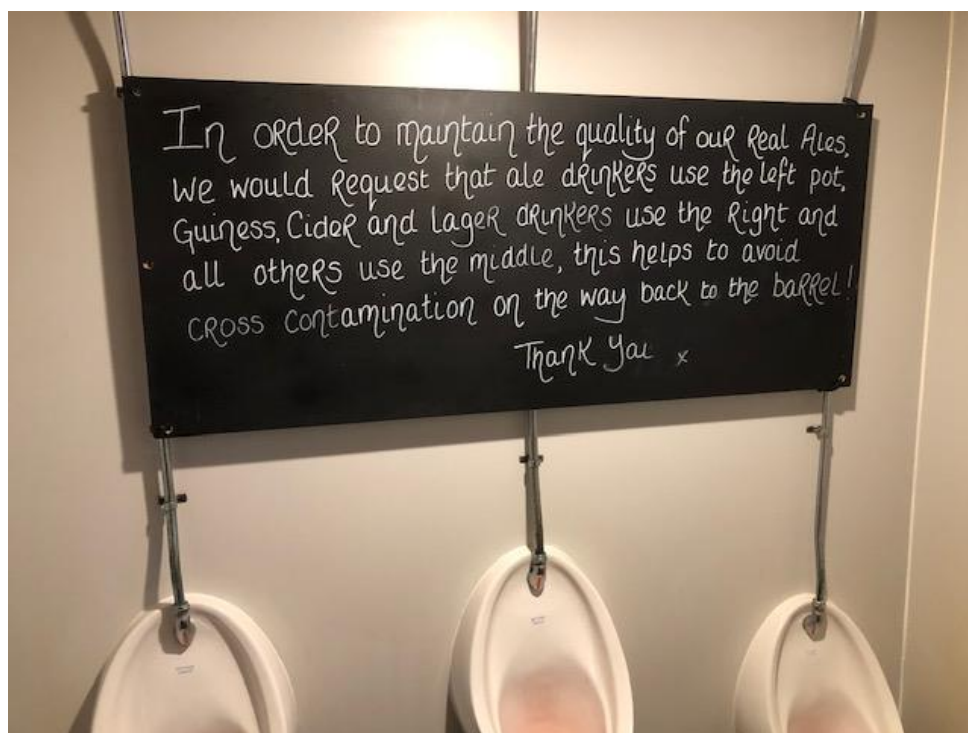 In order to maintain the quality of our Real Ales,
we would request that ale drinkers use the left pot,
Guiness, Cider and lager drinkers use the Right and
all others use the middle, this helps to avoid
cross contamination on the way back to the barrel!
Thank You x